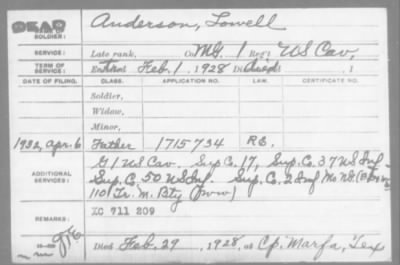 DEAD
SOLDIER: Anderson, Lowell
SERVICE: Late rank, Co. M.G. 1 Reg't US Cav.
TERM OF SERVICE: Feb. 1, 1928 Died
DATE OF FILING. CLASS. APPLICATION NO. LAW. CERTIFICATE NO.
Soldier,
Widow,
Minor,
1932, Apr. 6 Father 1715734 R.E.
ADDITIONAL SERVICES: G 1 US Cav. Sup. Co. 17, Sup. Co. 37 US Inf
Sup. C. 50 US Inf. Sup. Co. 2 Inf Mo NG
110 Tr. M. Bty (ww)
REMARKS: XC 711 209
Died Feb. 29, 1928, at Cp. Marfa, Tex